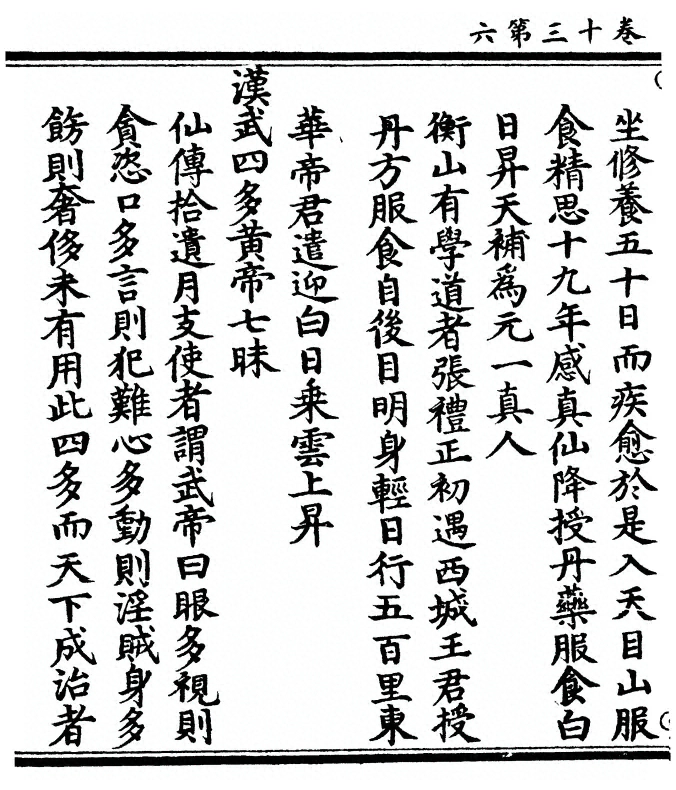 卷十三第六
坐修養五十日而疾愈於是入天目山服
食精思十九年感真仙降授丹藥服食白
日昇天補為元一真人
衡山有學道者張禮正初遇西城王君授
丹方服食自後目明身輕日行五百里東
華帝君遣迎白日乘雲上昇
漢武四多黄帝七昧
仙傳拾遺月支使者謂武帝曰眼多視則
貪恣口多言則犯難心多動則淫賊身多
餝則奢侈未有用此四多而天下成治者